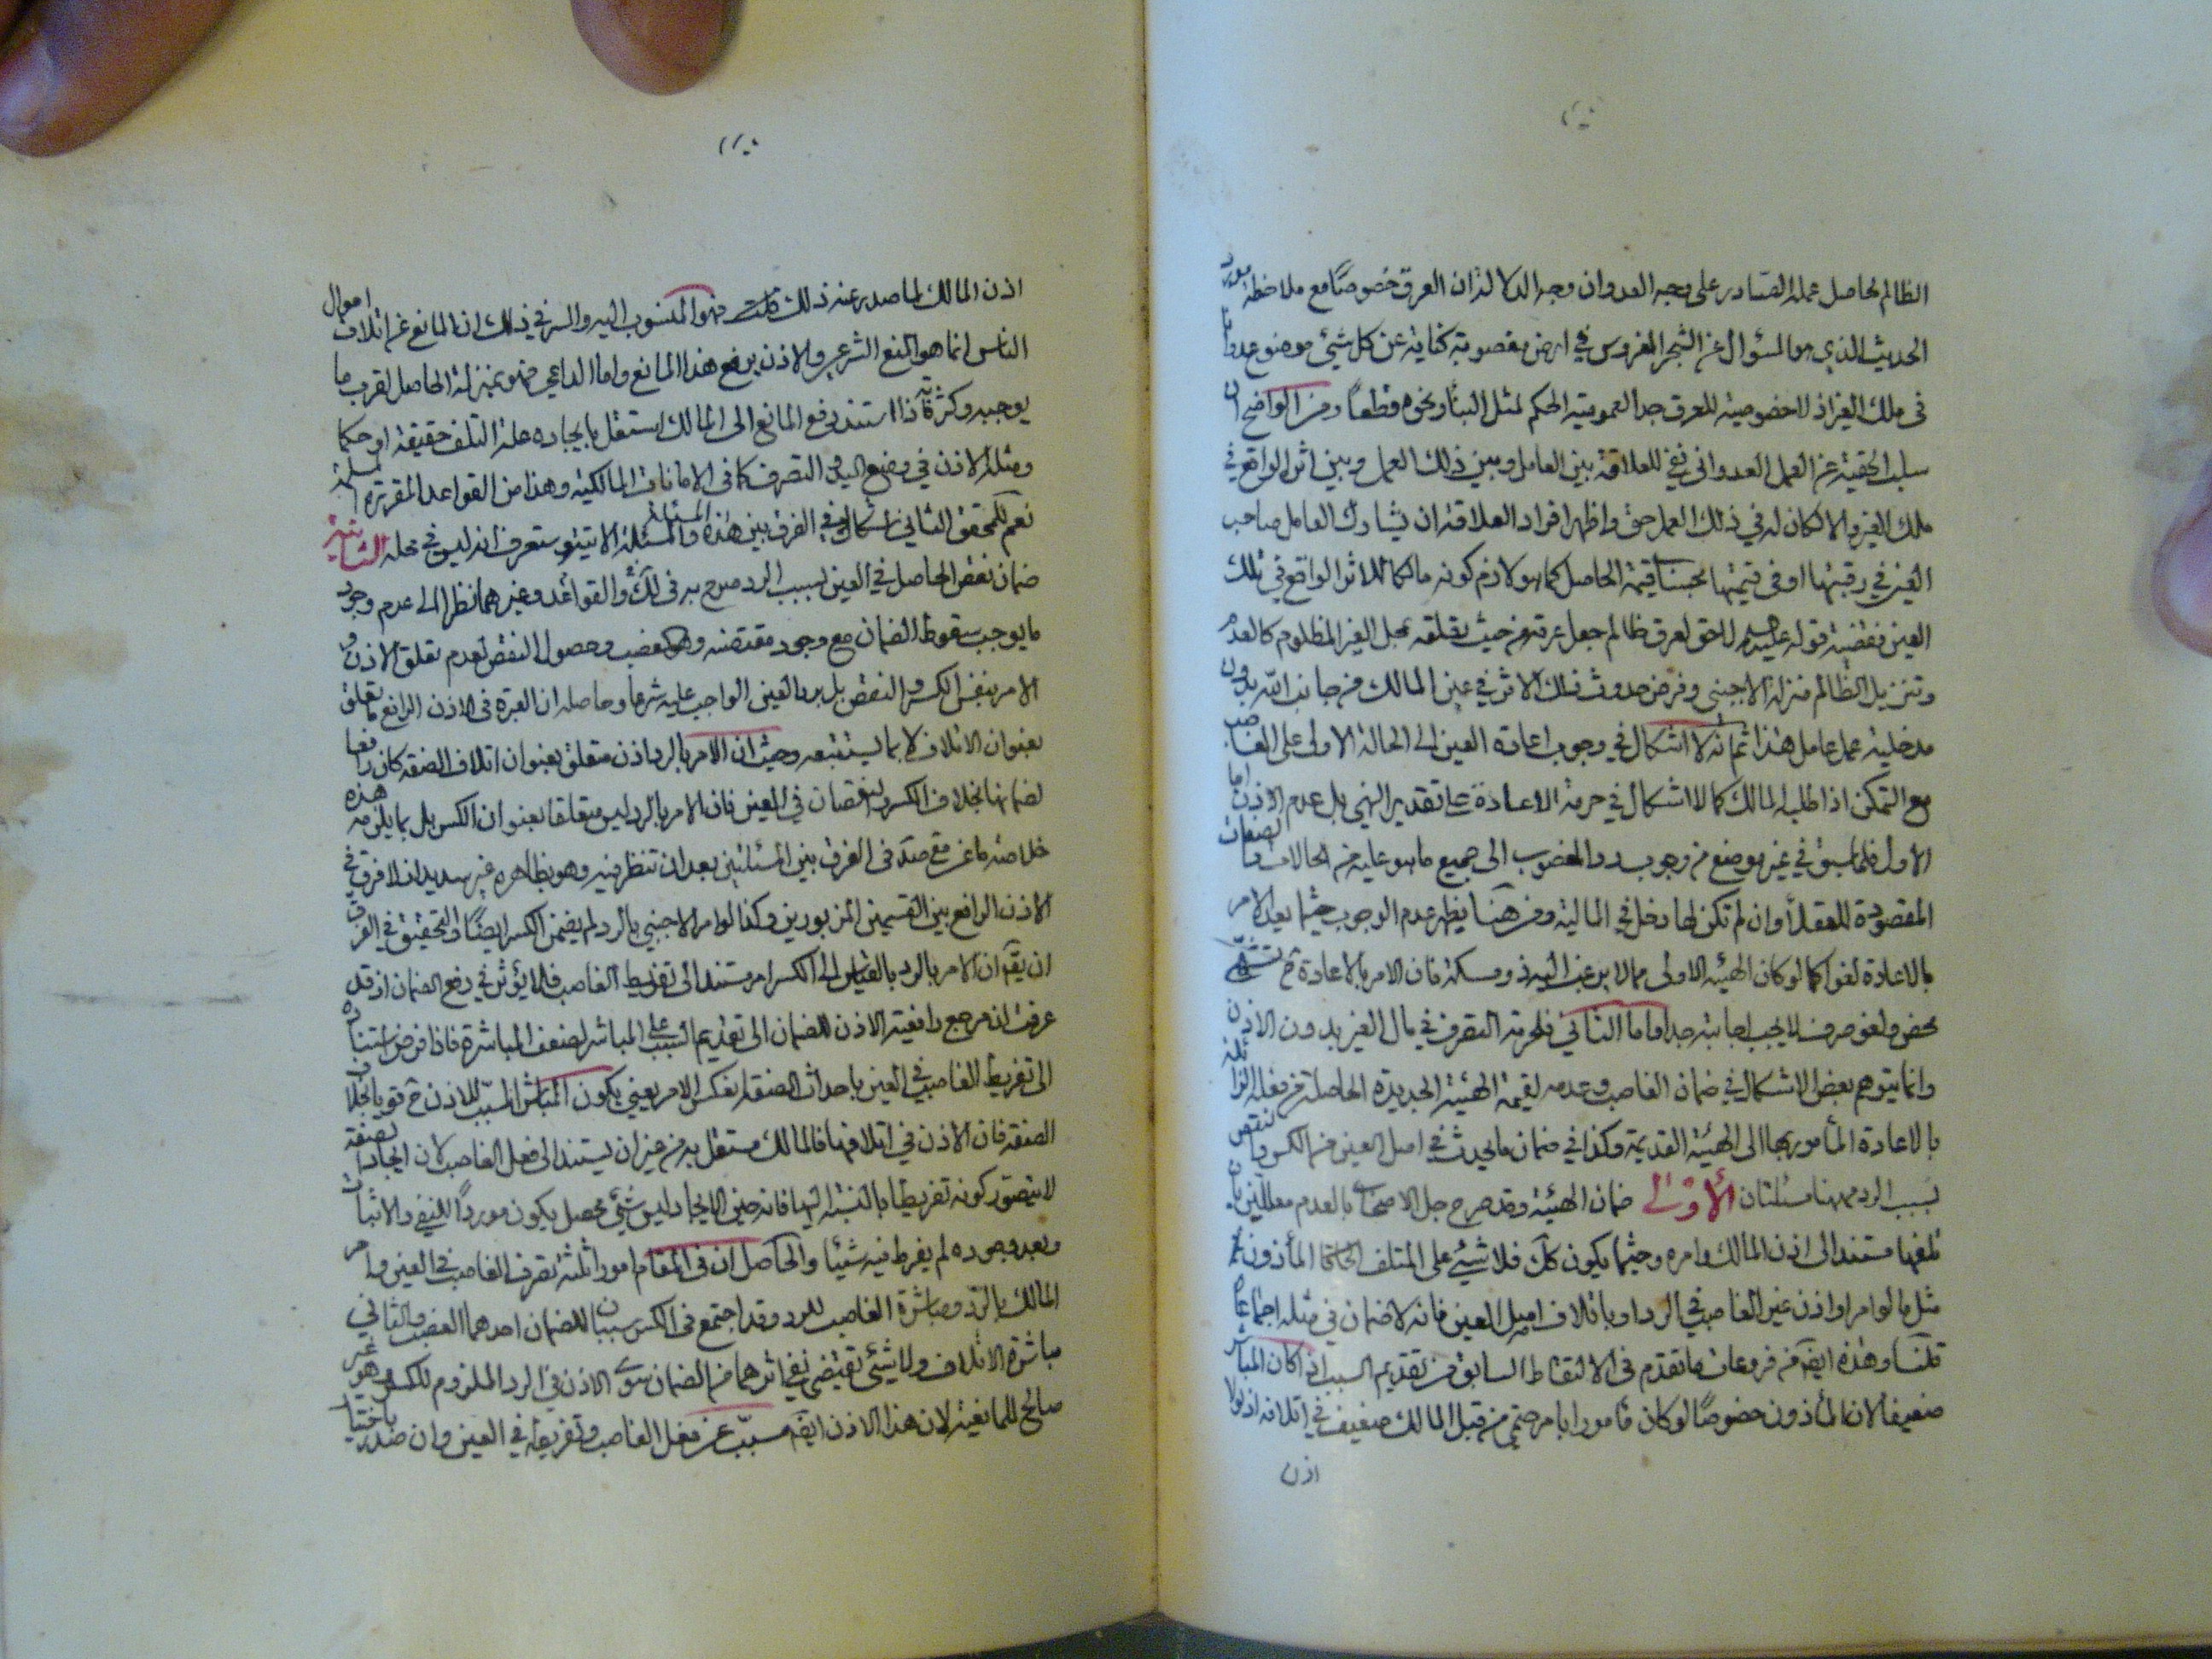 الظالم لحاصل عمله الصادر على وجه العدوان وجه الدلالة ان العرق خصوصًا مع ملاحظة مورد
الحديث الذي هو السؤال عن الشجر المغروس في ارض مغصوبة كناية عن كل شئ موضوع عدوانا
في ملك الغير اذ لا خصوصية للعرق جدا لعمومية الحكم لمثل البناء ونحوه قطعاً ومن الواضح ان
سلب الحقية عن العمل العدواني نفي للعلاقة بين العامل وبين ذلك العمل وبين اثر الواقع في
ملك الغير والا لكان له في ذلك العمل حق واظهر افراد العلاقة ان يشارك العامل صاحب
العين في رقبتها او في قيمتها بحسب قيمة الحاصل كما هو لازم كونه مالكا للاثر الواقع في تلك
العين فقضية قوله لا حق لعرق ظالم جعل عرقه من حيث تعلقه بمحل الغير المظلوم كالعدم
وتنزيل الظالم منزلة الاجنبي وفرض حدوث ذلك الاثر في عين المالك من جانب الله بدون
مدخلية عمل عامل هذا ثم انه لا اشكال في وجوب اعادة العين الى الحالة الاولى على الغاصب
مع التمكن اذا طلبه المالك كما لا اشكال في حرمة الاعادة على تقدير النهي بل عدم الاذن اما
الاول فلما سبق في غير موضع من وجوب رد المغصوب الى جميع ما هو عليه من الحالات والصفات
المقصودة للعقلاء وان لم تكن لها دخل في المالية ومن هنا يظهر عدم الوجوب حيثما يعد الامر
بالاعادة لغوا كما لو كان الهيئة الاولى مما لا يرغب اليه في ومسكنة فان الامر بالاعادة ح
محض ولغو صرف لا يجب اجابته جدا واما الثاني فلحرمة التصرف في مال الغير بدون الاذن
وانما يتوهم بعض الاشكال في ضمان الغاصب وعدمه لقيمة الهيئة الجديدة الحاصلة من فعله الزائلة
بالاعادة المأمور بها الى الهيئة القديمة وكذا في ضمان ما يحدث في اصل العين من الكسر والنقص
بسبب الرد فههنا مسئلتان الأولى ضمان الهيئة وقد صرح جل الاصحاب بالعدم معللين بان
تلفها مستند الى اذن المالك وامره وحيثما يكون كك فلا شئ على المتلف المأذون
مثل ما لو امر او اذن غير الغاصب في الرد او باتلاف اصل العين فانه لا ضمان في مثله اجماعا
قلنا وهذه ايضا من فروعات ما تقدم في الالتقاط السابق من تقديم السبب اذا كان المباشر
ضعيفا لان المأذون خصوصًا لو كان مأمورا بامر حتمي من قبل المالك ضعيف في اتلافه اذ لولا
اذن
اذن المالك لما صدر عنه ذلك فهو المنسوب اليه والسر في ذلك ان المانع عن اتلاف اموال
الناس انما هو المنع الشرعي والاذن يرفع هذا المانع واما الداعي فهو بمنزلة الحاصل لقرب ما
يوجبه وكثرته فاذا استند رفع المانع الى المالك استقل بايجاده علة التلف حقيقة او حكما
ومثله الاذن في وضع اليد او التصرف كما في الامانات المالكية وهذا من القواعد المقررة المسلمة
نعم للمحقق الثاني اشكال في الفرق بين هذه المسئلة والمسئلة الاتية وستعرف انه ليس في محله الثانية
ضمان نقص الحاصل في العين بسبب الرد صرح به في لك والقواعد وغيرهما نظرا الى عدم وجود
ما يوجب سقوط الضمان مع وجود مقتضيه وهو الغصب وحصول النقص لعدم تعلق الاذن و
الامر بنفس الكسر والنقص بل برد العين الواجب عليه شرعا وحاصله ان العبرة في الاذن الرافع ما تعلق
بعنوان الاتلاف لا بما يستتبعه وحيث ان الامر بالرد اذن متعلق بعنوان اتلاف الصنعة كان رافعا
لضمانها بخلاف الكسر والنقصان في العين فان الامر بالرد ليس متعلقا بعنوان الكسر بل بما يلزمه هذه
خلاصة ما في مع صد في الفرق بين المسئلتين بعد ان تنظر فيه وهو بظاهره غير سديد اذ لا فرق في
الاذن الرافع بين القسمين المزبورين وكذا لو امر الاجنبي بالرد لم يضمن الكسر ايضًا والتحقيق في الفرق
ان يقال ان الامر بالرد بالقياس الى الكسر امر مستند الى تفريط الغاصب فلا يؤثر في رفع الضمان اذ قد
عرفت ان مرجع رافعية الاذن للضمان الى تقديم السبب على المباشر لضعف المباشرة فاذا فرض استناده
الى تفريط الغاصب في العين باحداث الصنعة انعكس الامر يعني يكون المباشر المسبب للاذن ح قويا بخلاف
الصنعة فان الاذن في اتلافها فالمالك مستقل به من غير ان يستند الى فعل الغاصب لان ايجاد الصنعة
لا يتصور كونه تفريطا بالنسبة اليها فانه حين الايجاد ليس شئ محصل يكون موردًا للنفي والاثبات
وبعد وجوده لم يفرط فيه شيئا والحاصل ان في المقام امورا ثلثة تصرف الغاصب في العين وامر
المالك بالرد ومباشرة الغاصب للرد وقد اجتمع في الكسر سببان للضمان احدهما الغصب والثاني
مباشرة الاتلاف ولا شئ تقتضي نفي اثرهما من الضمان سوى الاذن في الرد الملزوم للكسر وهو غير
صالح للمانعية لان هذا الاذن ايضا مسبّب عن فعل الغاصب وتفريطه في العين وان صدر باختيار